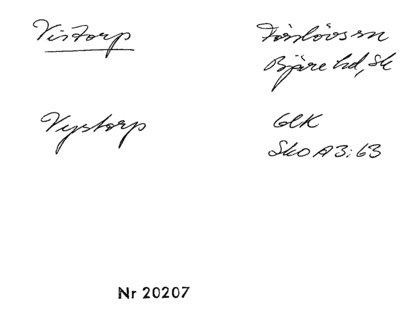 Vistorp
Förslövs sn
Bjäre hd, Sk
Vystorp
GEK
Sko A3:63
Nr 20207